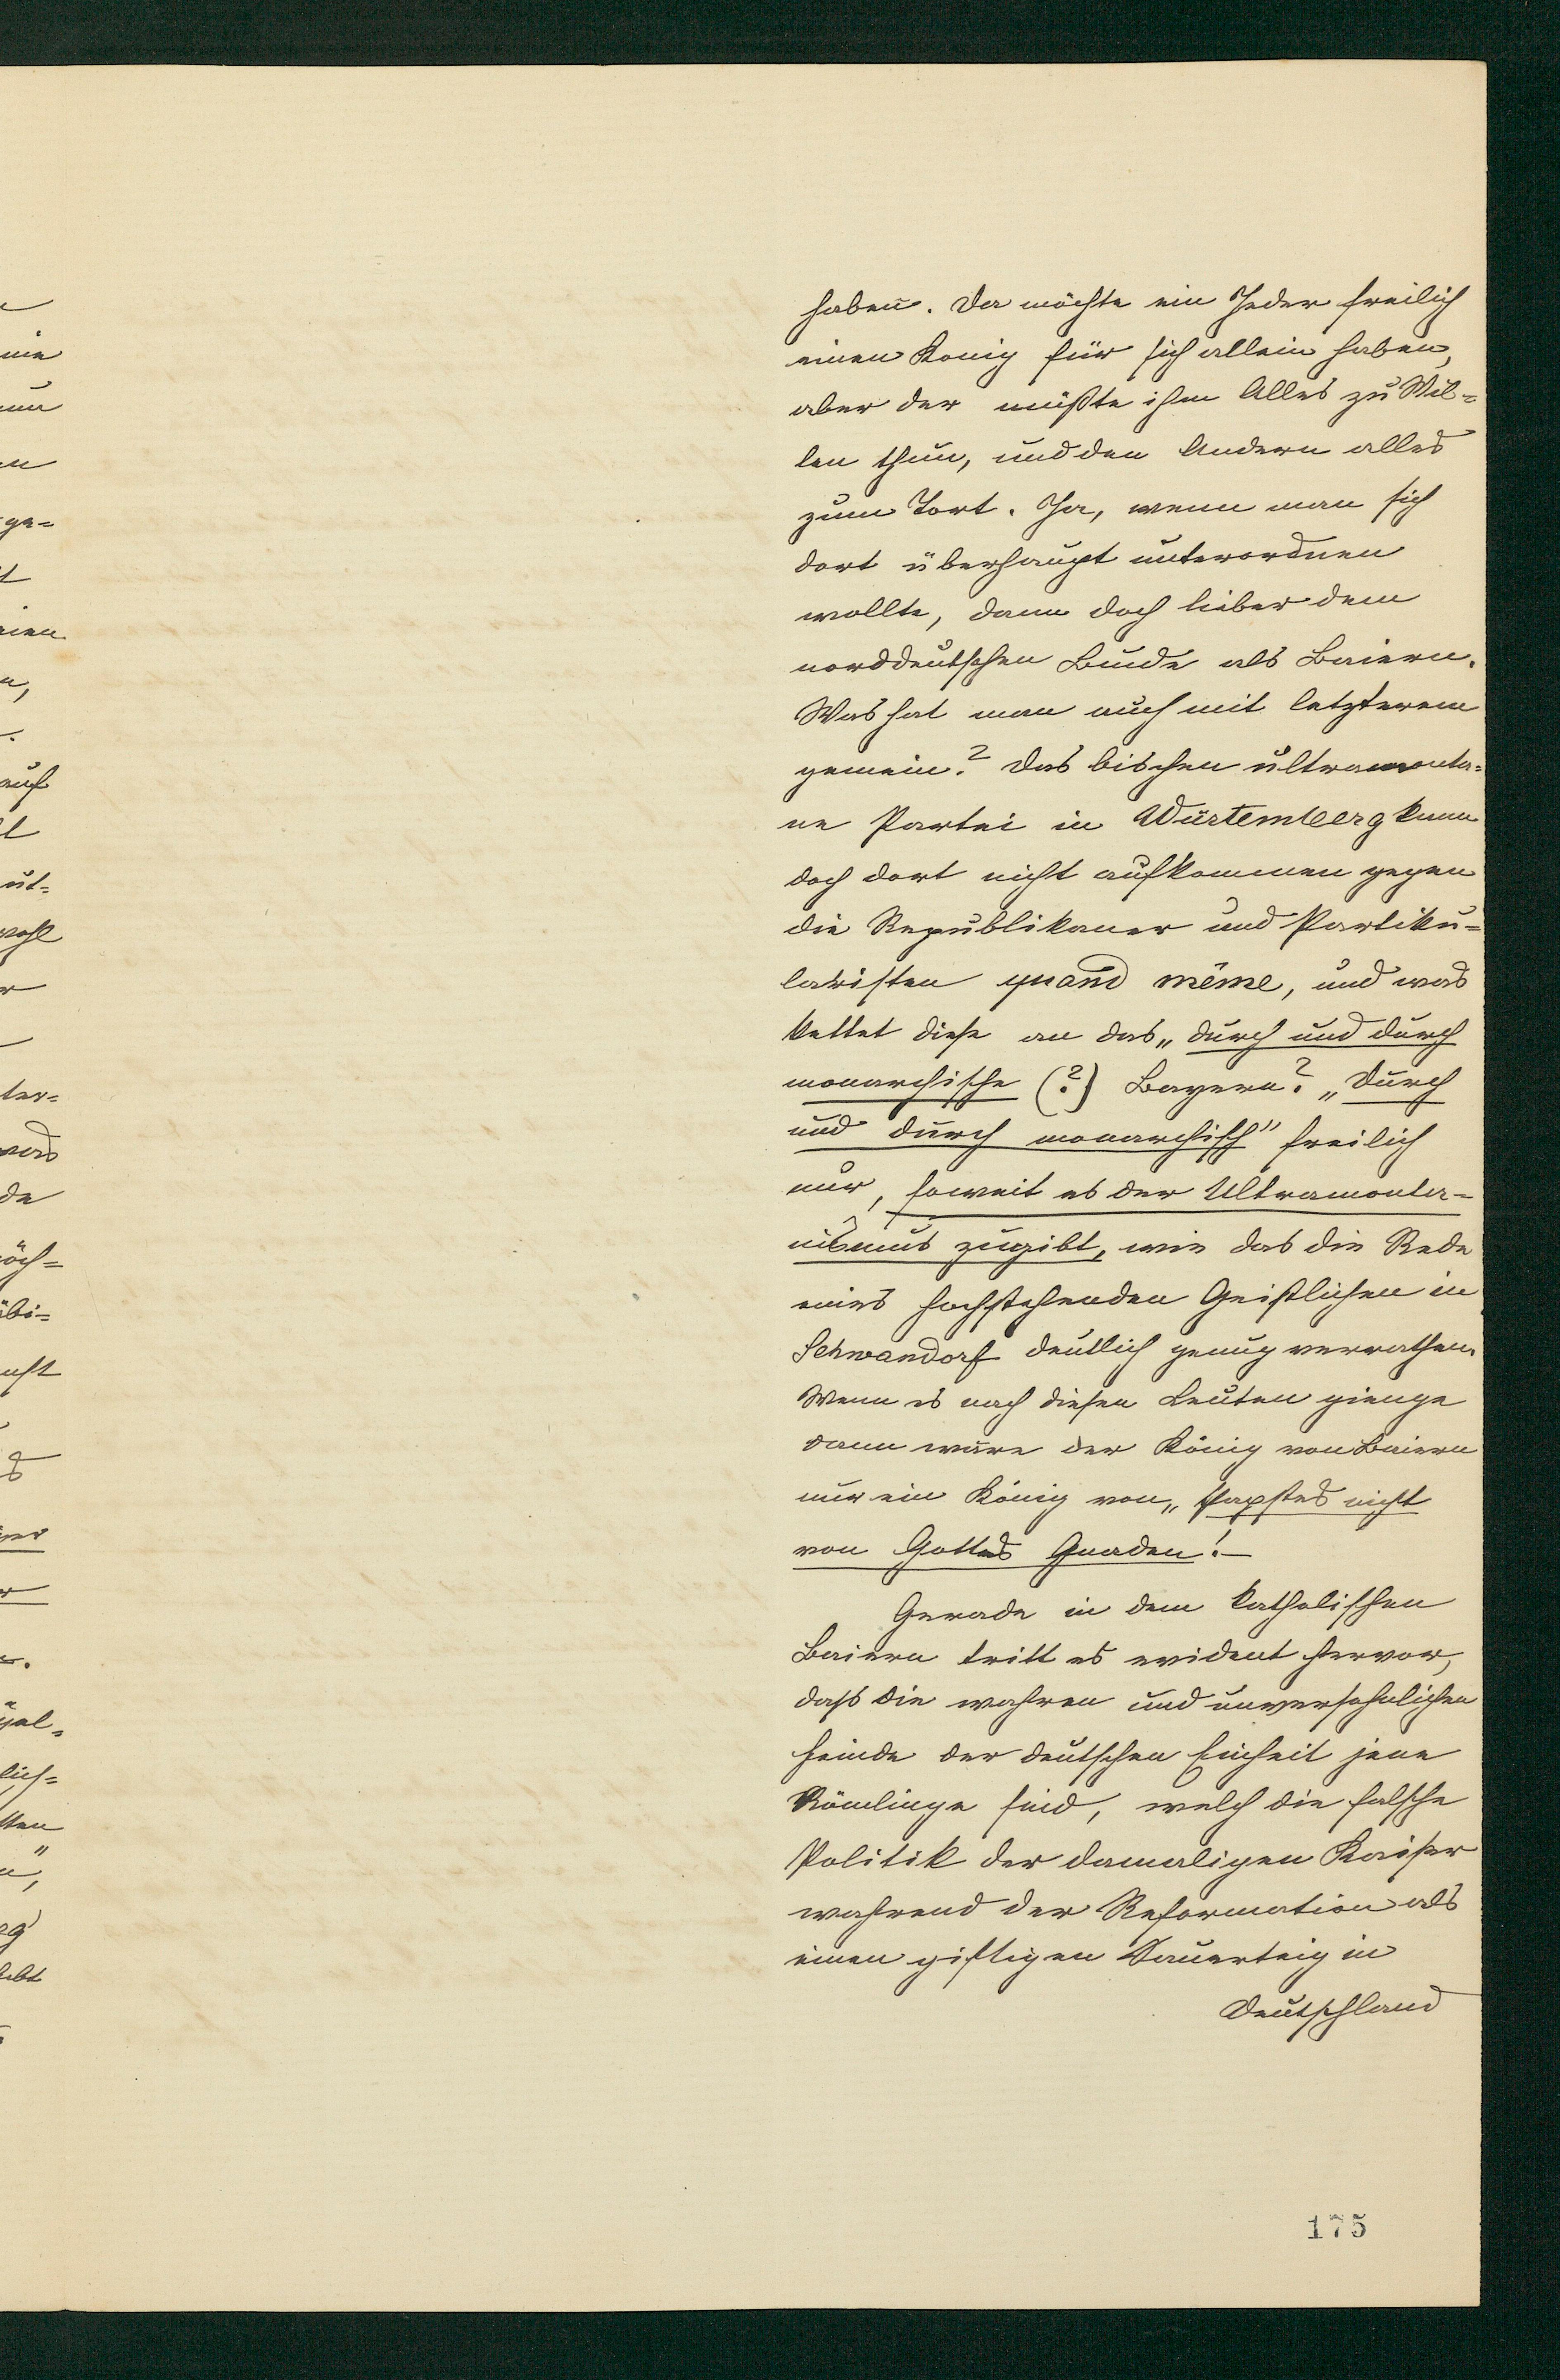 haben. Da möchte ein Jeder freilich
einen König für sich allein haben,
aber der müßte ihm Alles zu Wil=
len thun, und den Andern alles
zum Tort. Ja, wenn man sich
dort überhaupt unterordnen
wollte, dann doch lieber dem
norddeutschen Bunde als Baiern.
Was hat man auch mit letzterem
gemein? Das bischen ultramonta=
ne Partei in Würtemberg kann
doch dort nicht aufkommen gegen
die Republikaner und Partiku=
laristen quand même, und was
kettet diese an das „durch und durch
monarchische (?) Bayern? „Durch
und durch monarchisch" freilich
nur, soweit es der Ultramonta=
nismus zugibt, wie das die Rede
eines hochstehenden Geistlichen in
Schwandorf deutlich genug verrathen.
Wenn es nach diesen Leuten gienge
dann wäre der König von Baiern
nur ein König von „Papstes nicht
von Gottes Gnaden! –
Gerade in dem katholischen
Baiern tritt es evident hervor,
daß die wahren und unversohnlichen
Feinde der deutschen Einheit jene
Römlinge sind, welch die falsche
Politik der damaligen Kaiser
wahrend der Reformation als
einen giftigen Sauerteig in
Deutschland
175